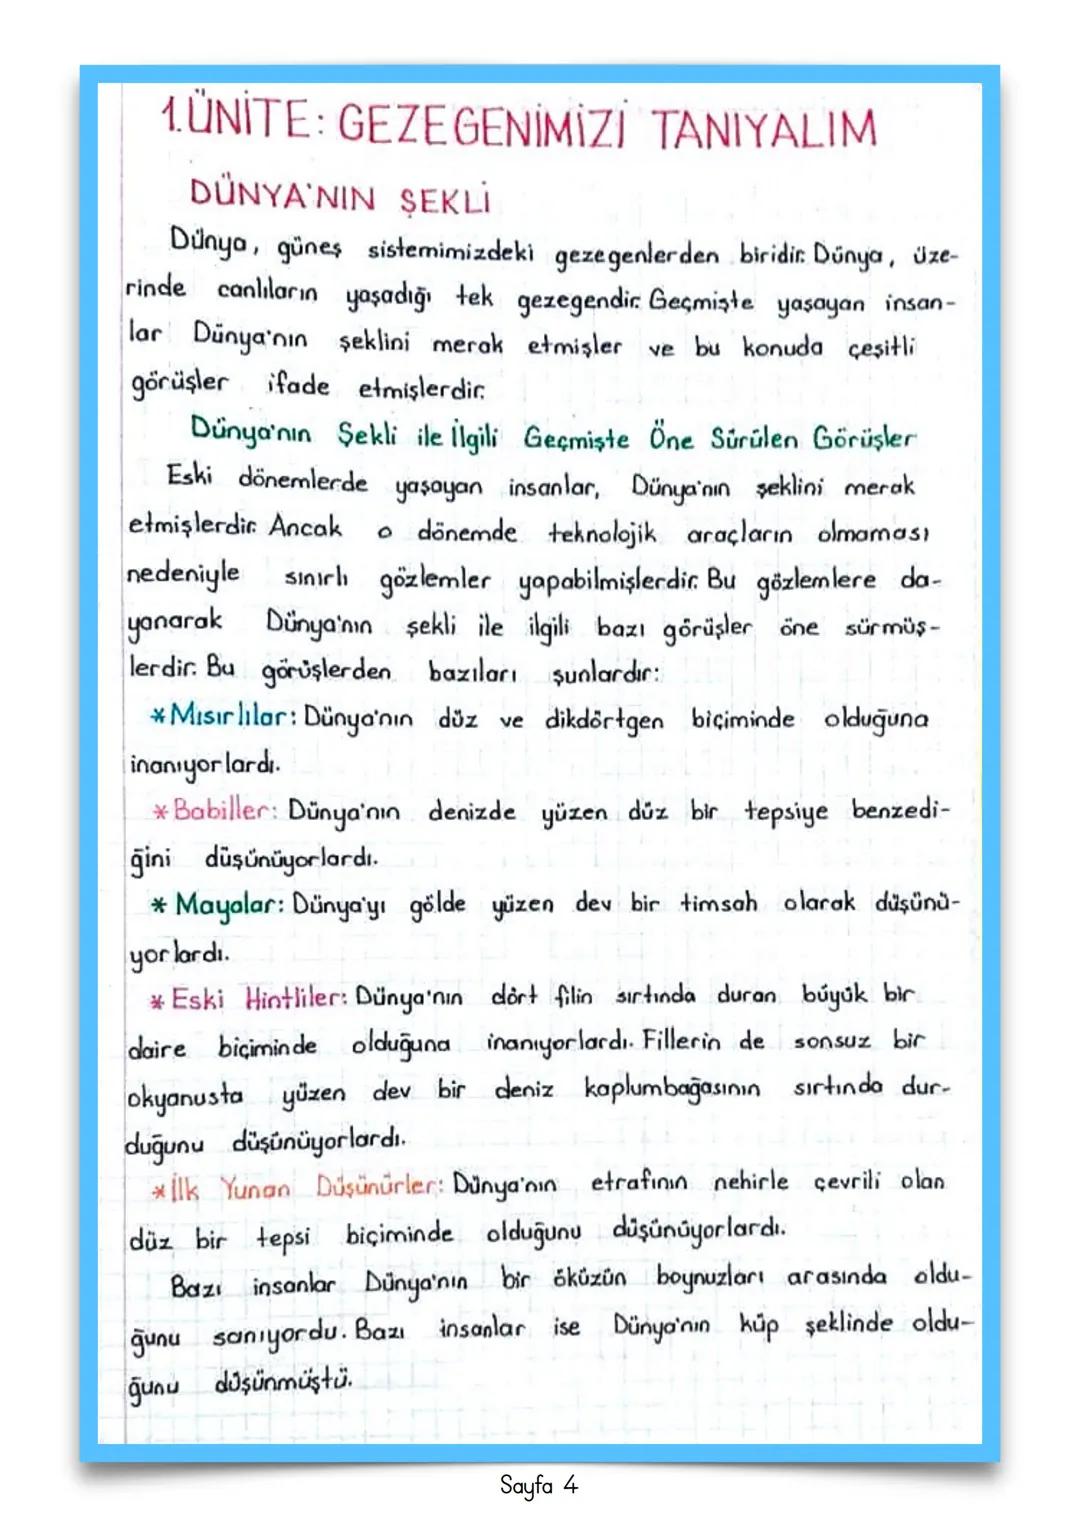 1.ÜNİTE: GEZEGENİMİZİ TANIYALIM
DÜNYA'NIN ŞEKLİ
Dünya, güneş sistemimizdeki gezegenlerden biridir. Dünya, üze-
rinde canlıların yaşadığı tek gezegendir. Geçmişte yaşayan insan-
lar Dünya'nın şeklini merak etmişler ve bu konuda çeşitli
görüşler ifade etmişlerdir.
Dünya'nın Şekli ile İlgili Geçmişte Öne Sürülen Görüşler
Eski dönemlerde yaşayan insanlar, Dünya'nın şeklini merak
etmişlerdir. Ancak o dönemde teknolojik araçların olmaması
nedeniyle sınırlı gözlemler yapabilmişlerdir. Bu gözlemlere da-
yanarak Dünya'nın şekli ile ilgili bazı görüşler öne sürmüş-
lerdir. Bu görüşlerden bazıları şunlardır:
*Mısırlılar: Dünya'nın düz ve dikdörtgen biçiminde olduğuna
inanıyorlardı.
*Babiller: Dünya'nın denizde yüzen düz bir tepsiye benzedi-
ğini düşünüyorlardı.
* Mayalar: Dünya'yı gölde yüzen dev bir timsah olarak düşünü-
yorlardı.
* Eski Hintliler: Dünya'nın dört filin sırtında duran büyük bir
daire biçiminde olduğuna inanıyorlardı. Fillerin de sonsuz bir
okyanusta yüzen dev bir deniz kaplumbağasının sırtında dur-
duğunu düşünüyorlardı.
*İlk Yunan Düşünürler: Dünya'nın etrafının nehirle çevrili olan
düz bir tepsi biçiminde olduğunu düşünüyorlardı.
Bazı insanlar Dünya'nın bir öküzün boynuzları arasında oldu-
ğunu sanıyordu. Bazı insanlar ise Dünya'nın küp şeklinde oldu-
ğunu düşünmüştü.
Sayfa 4